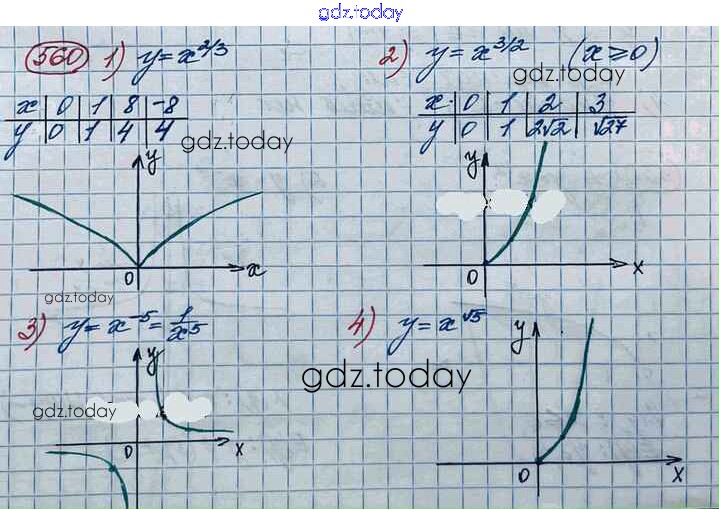 gdz.today
560 1) y = x^2/3
x 0 1 8 -8
y 0 1 4 4
gdz.today
y
0 x
gdz.today
2) y = x^3/2 (x ⩾ 0)
gdz.today
x 0 1 2 3
y 0 1 2√2 √27
y
0 x
3) y = x^-5 = 1/x^5
y
gdz.today
0 x
4) y = x^√5
y
gdz.today
0 x